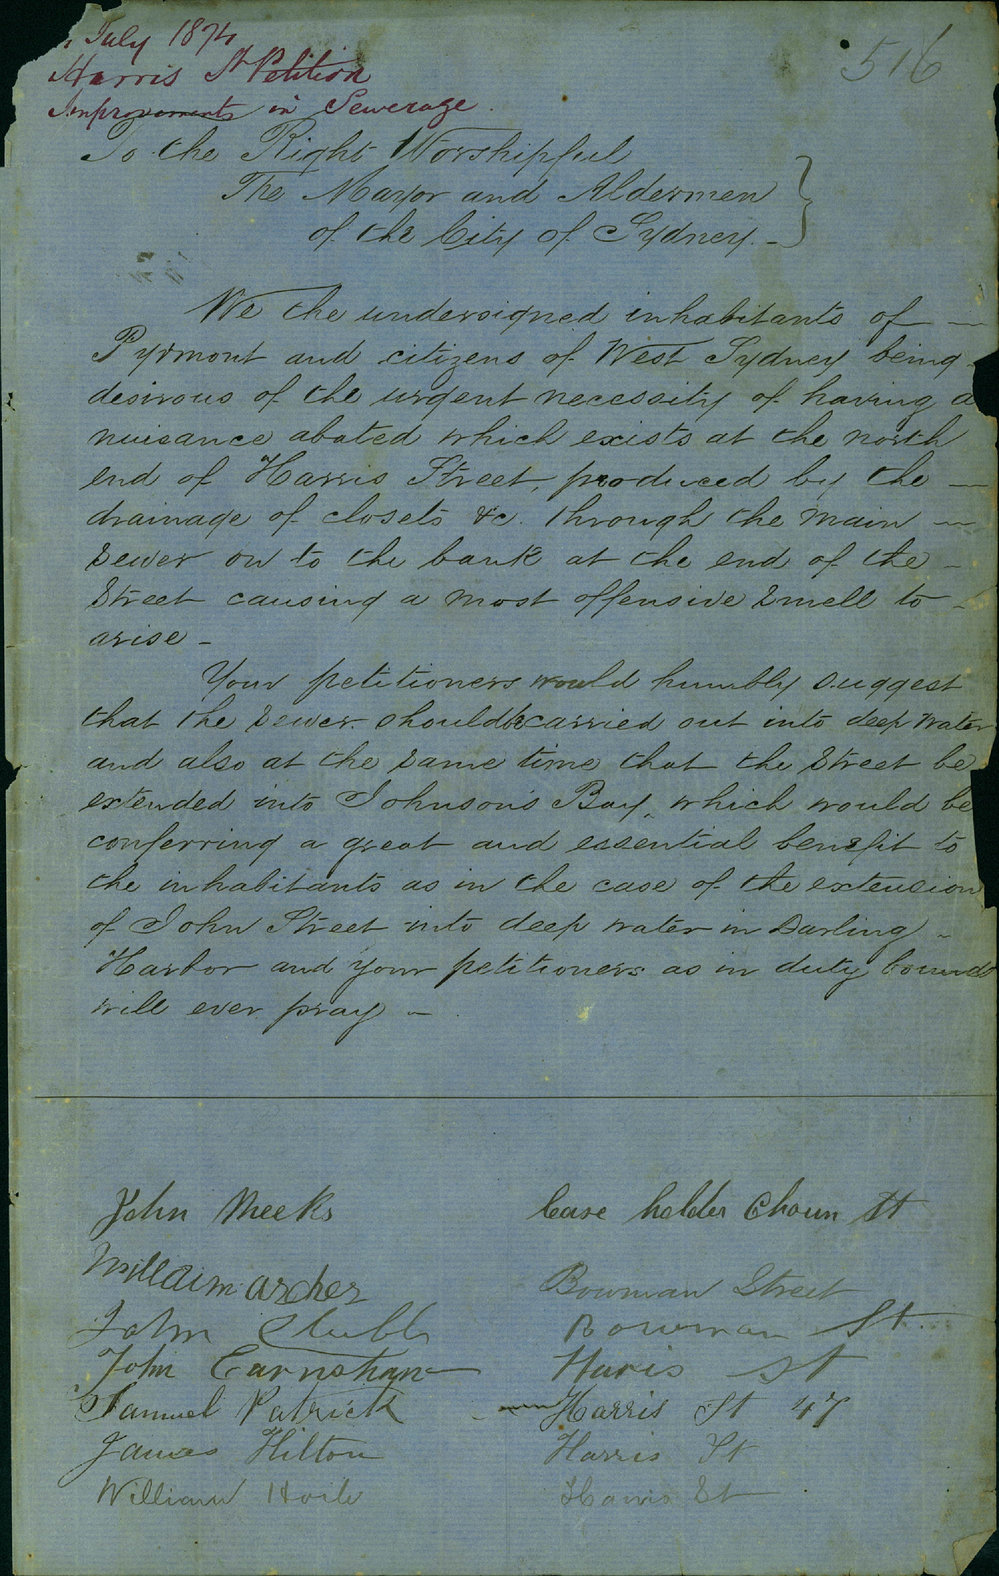 July 1874
Harris St Petition
Improvements in Sewerage
516
To the Right Worshipful
The Mayor and Aldermen
of the City of Sydney.
We the undersigned inhabitants of
Pyrmont and citizens of West Sydney being
desirous of the urgent necessity of having a
nuisance abated which exists at the north
end of Harris Street, produced by the
drainage of closets &c. through the main
Sewer on to the bank at the end of the
Street causing a most offensive Smell to
arise -
Your petitioners would humbly suggest
that the Sewer should be carried out into deep water
and also at the same time that the Street be
extended into Johnson's Bay, which would be
conferring a great and essential benefit to
the inhabitants as in the case of the extension
of John Street into deep water in Darling
Harbor and your petitioners as in duty bound
will ever pray -
John Meeks lease holder Choun St
Willaim archer Bowman Street
John Stubbs Bowman St
John Earnshaw Haris St
Samuel Patrick Harris St 47
James Hilton Harris St
William Harris St